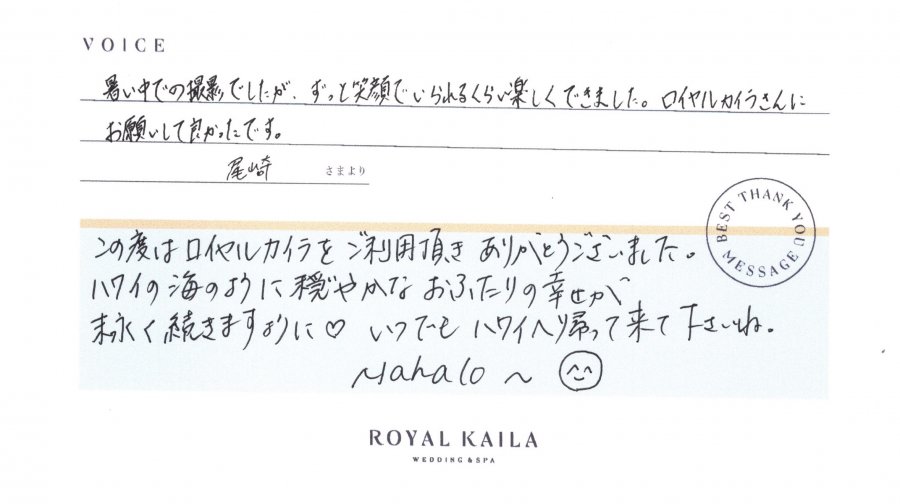 VOICE
暑い中での撮影でしたが、ずっと笑顔でいられるくらい楽しくできました。ロイヤルカイラさんに
お願いして良かったです。
尾崎 さまより
BEST THANK YOU MESSAGE
この度はロイヤルカイラをご利用頂きありがとうございました。
ハワイの海のように穏やかなおふたりの幸せが
末永く続きますように♡ いつでもハワイへ帰って来て下さいね。
Mahalo ~
ROYAL KAILA
WEDDING & SPA